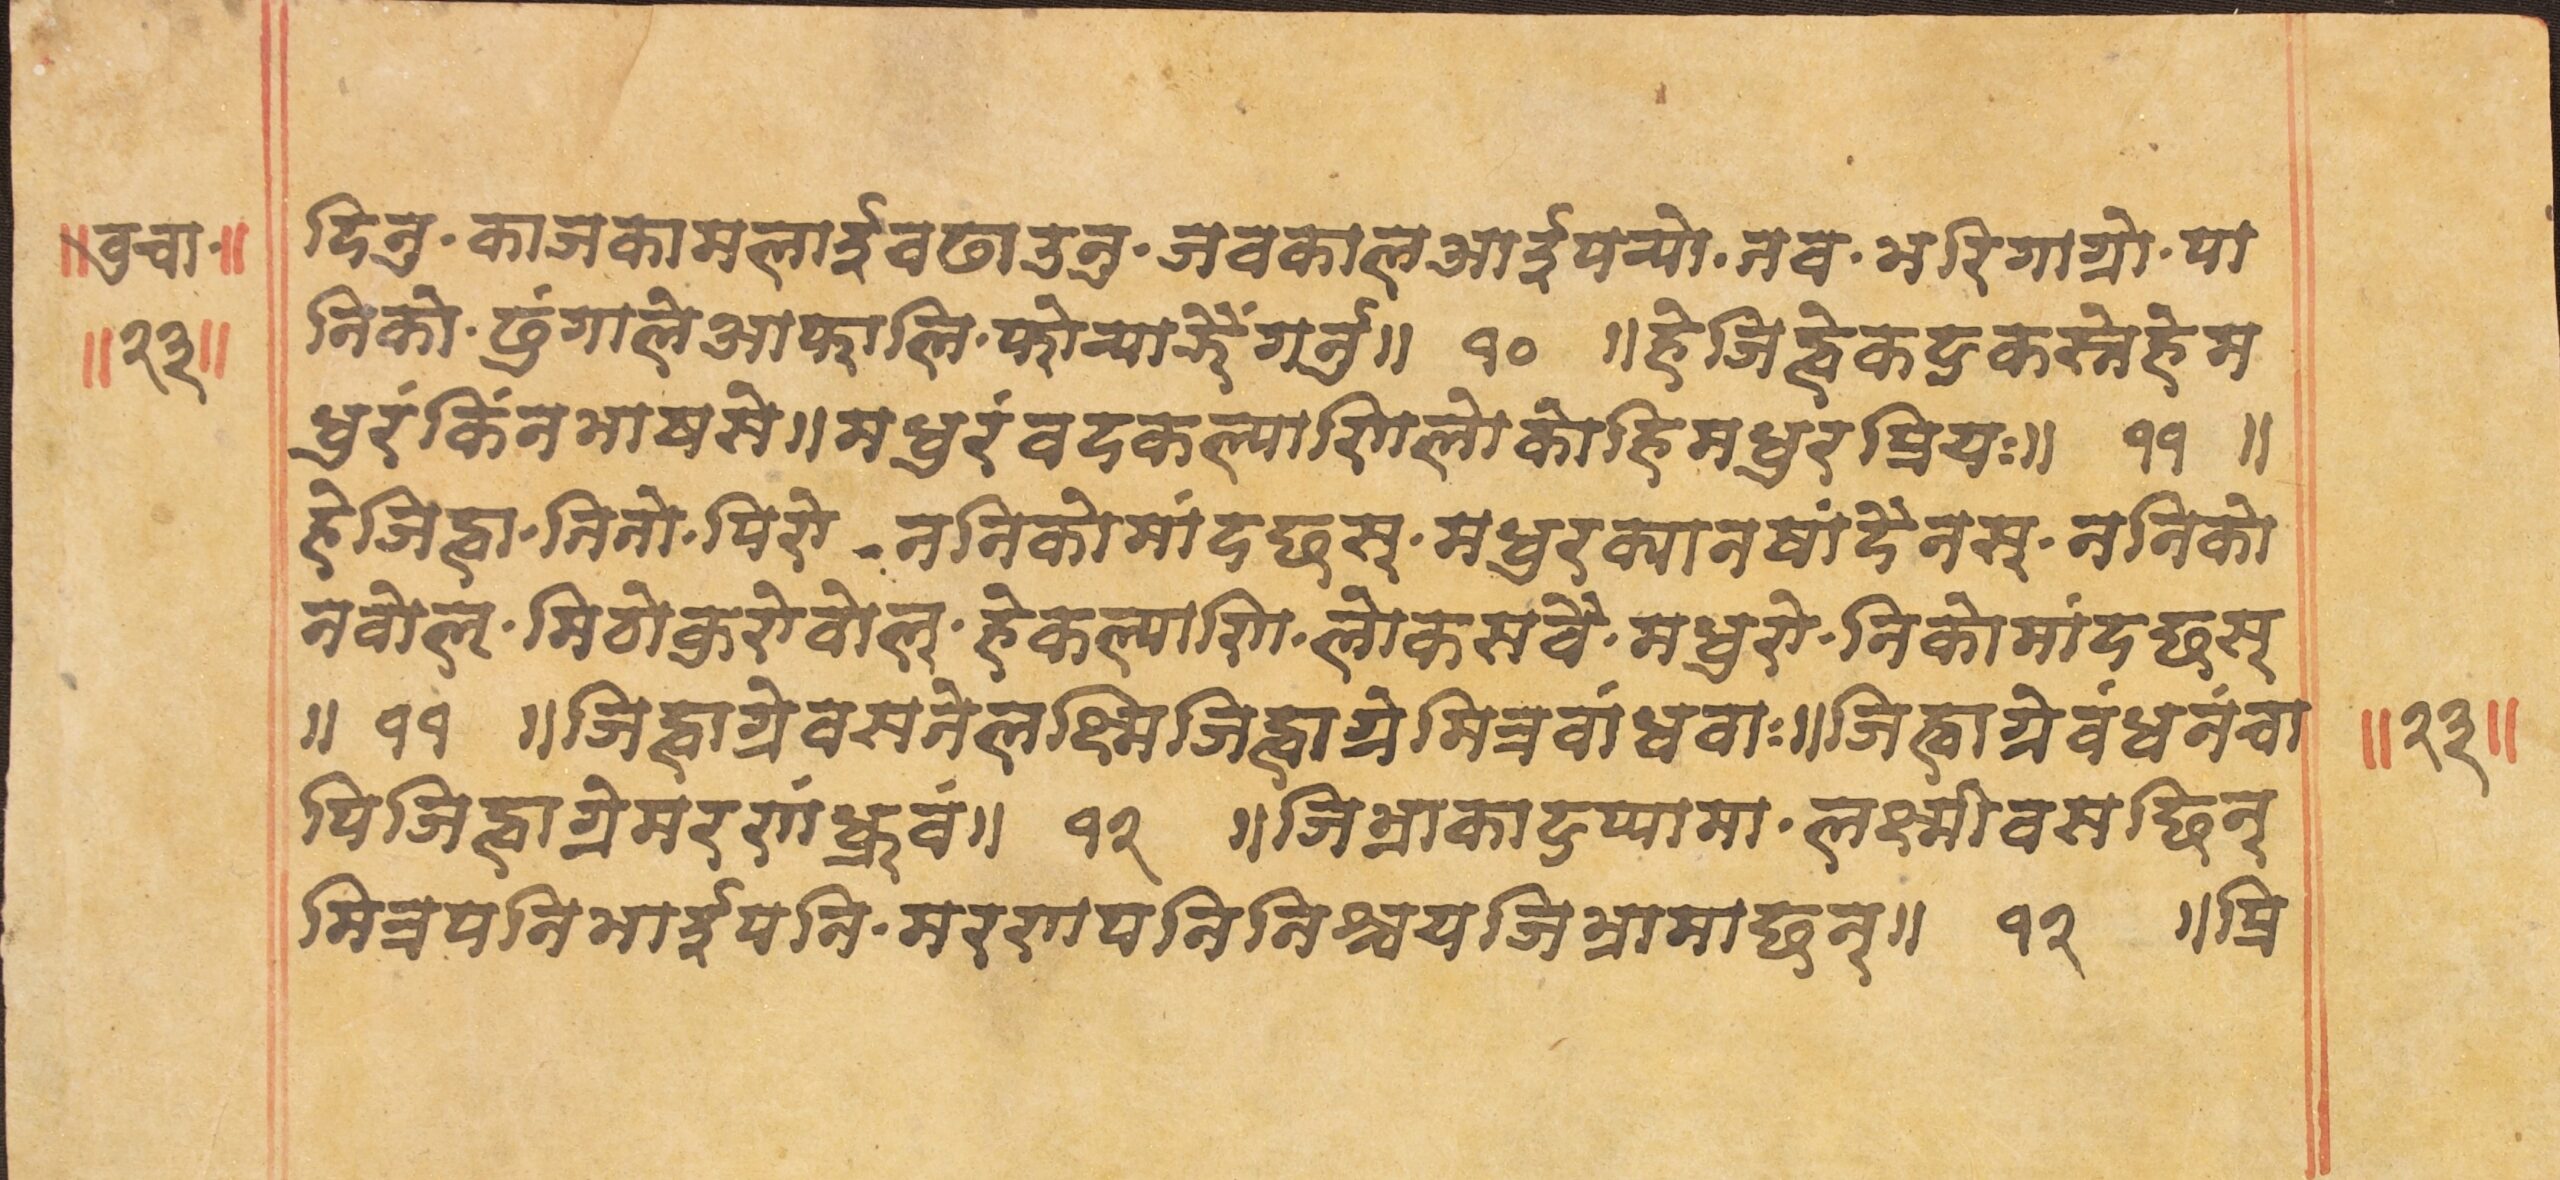 ॥वुचा·॥
॥२३॥
दिनु·काजकामलाईवढाउनु·जवकालआईपर्‍यो·तव·भरिगाग्रो·पा
निको·ढुंगालेआफालि·फोर्‍याझैंगर्नु॥ १० ॥हेजिह्वेकटुकस्नेहेम
धुरंकिंनभाषसे॥मधुरंवदकल्याणिलोकोहिमधुरप्रियः॥ ११ ॥
हेजिह्वा·तितो·पिरो - ततिकोमांदछस्·मधुरक्यानषांदैनस्·ततिको
नवोल्·मिठोकुरोवोल्·हेकल्याणि·लोकसवै·मधुरो·निकोमांदछस्
॥ ११ ॥जिह्वाग्रेवसतेलक्ष्मिजिह्वाग्रेमित्रवांधवाः॥जिह्वाग्रेवंधनंचा
पिजिह्वाग्रेमरणंध्रुवं॥ १२ ॥जिभ्राकाटुप्पामा·लक्ष्मीवसछिन्
मित्रपनिभाईपनि·मरणपनिनिश्चयजिभ्रामाछन्॥ १२ ॥प्रि
॥२३॥